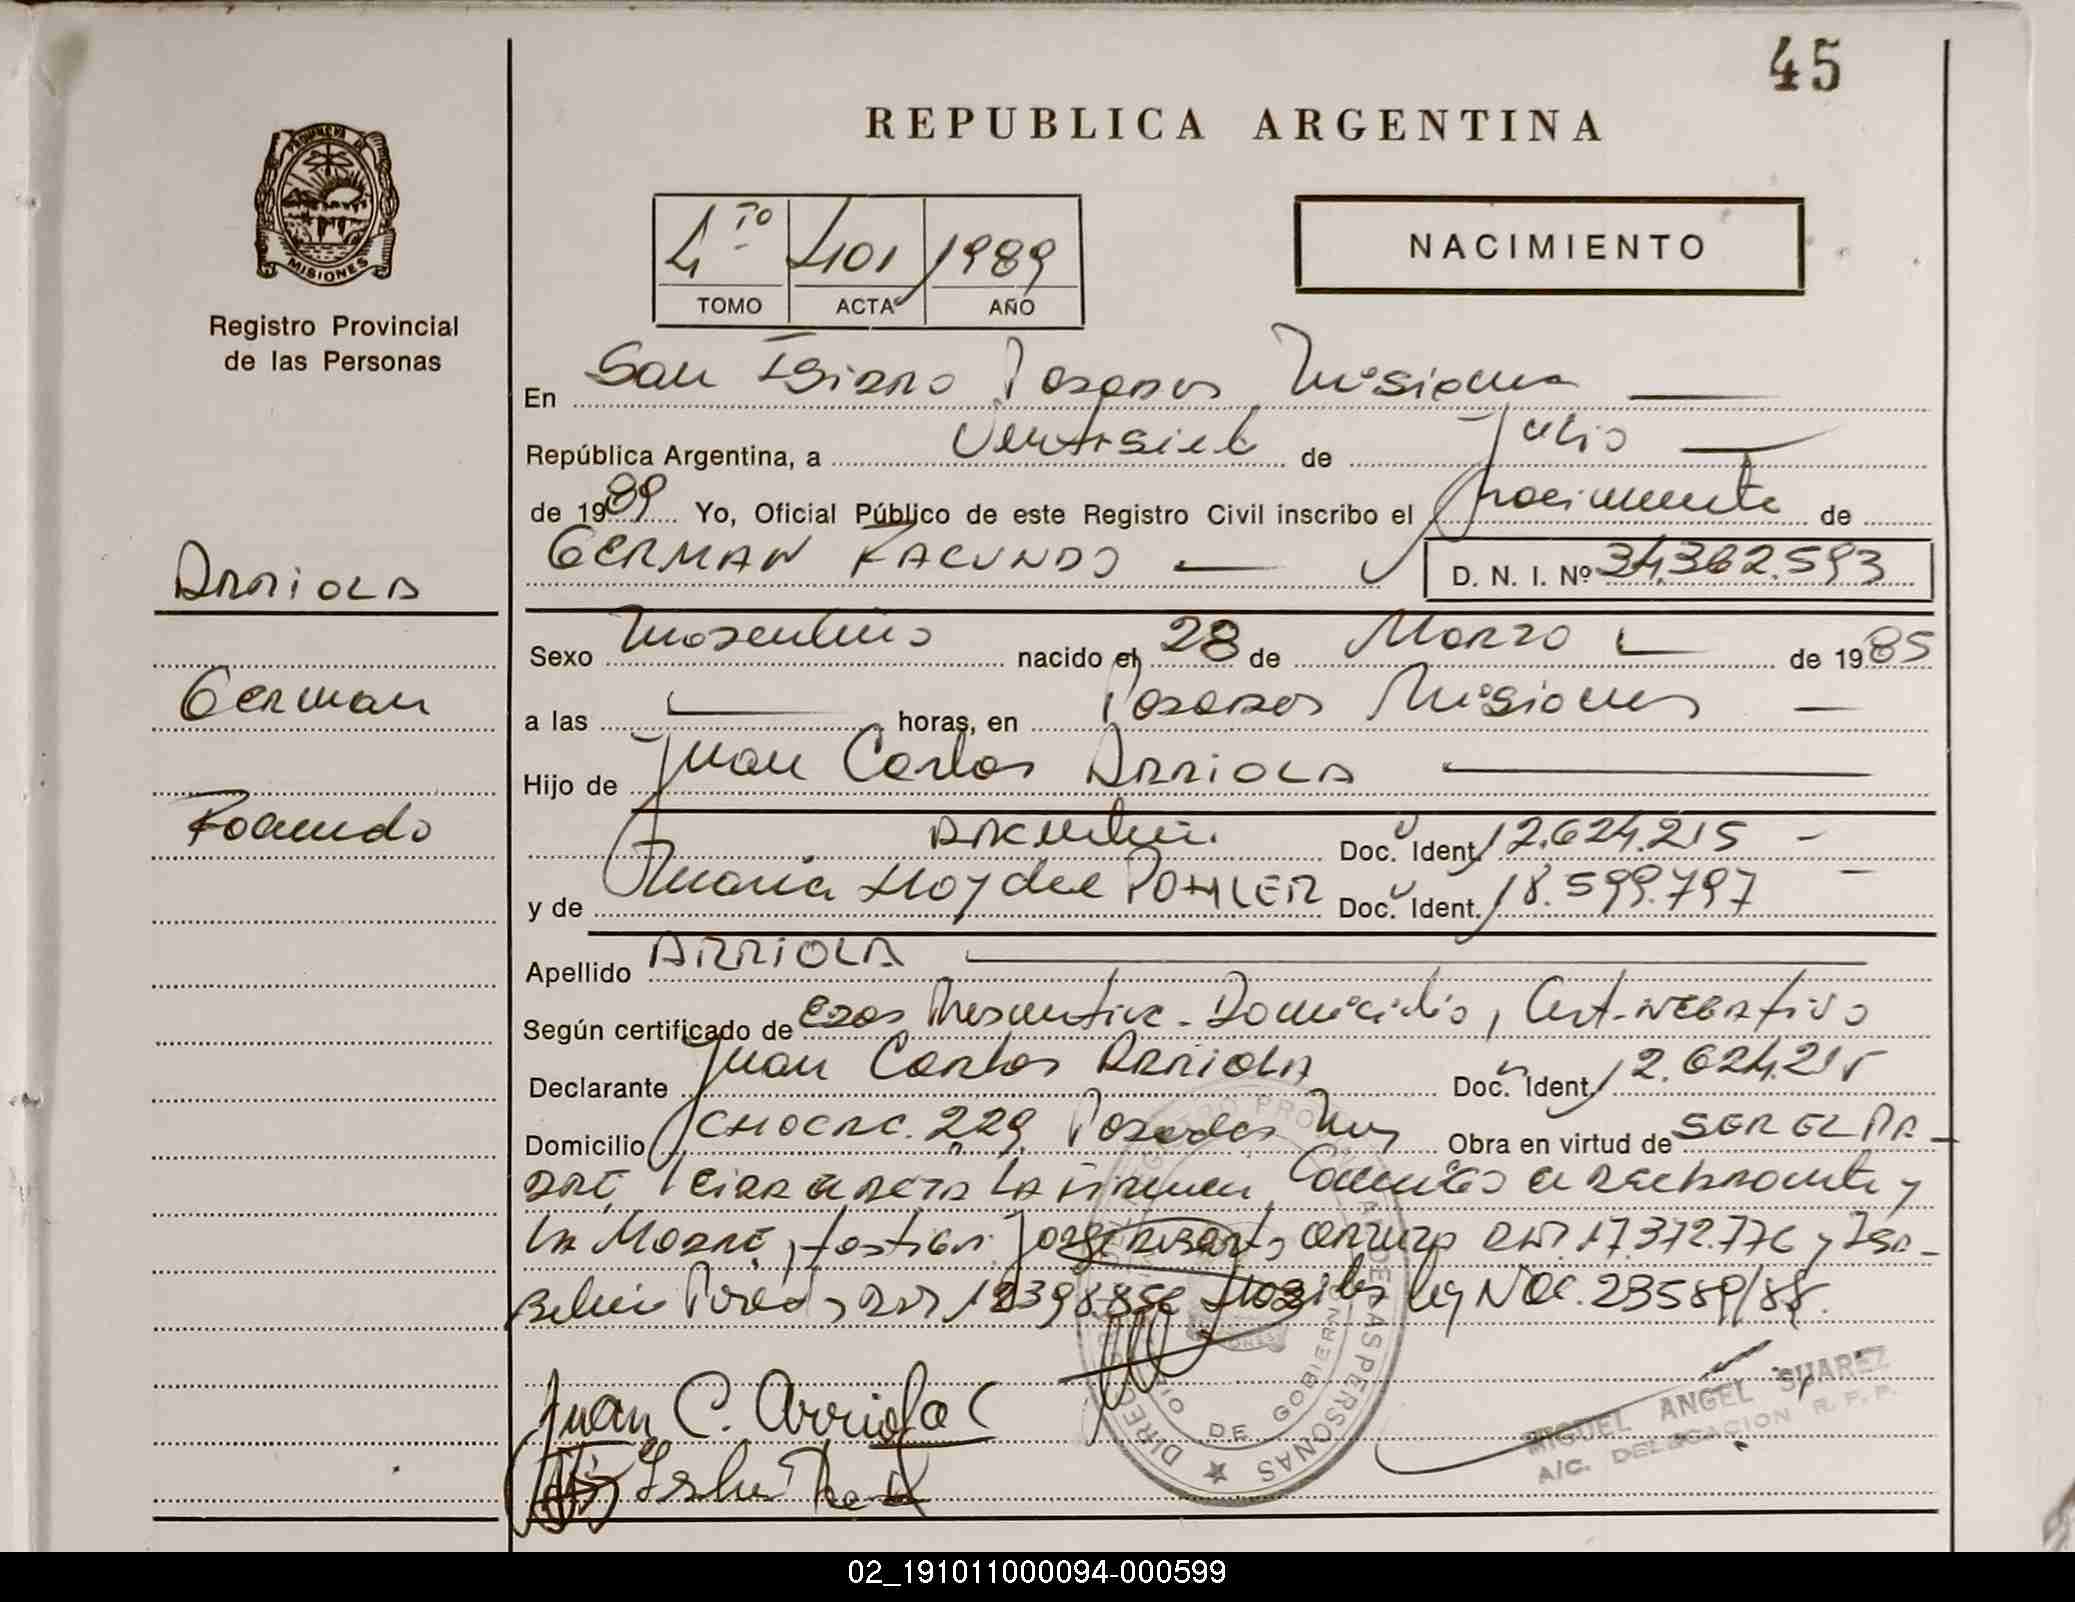 45
REPUBLICA ARGENTINA
PROVINCIA DE
MISIONES
Registro Provincial
de las Personas
4 TO 401 1989
TOMO ACTA AÑO
NACIMIENTO
En San Isidro Posadas Misiones
República Argentina, a Veintisiete de Julio
de 1989 Yo, Oficial Público de este Registro Civil inscribo el nacimiento de
GERMAN FACUNDO D. N. I. Nº 34.362.593
ARRIOLA
Sexo Masculino nacido el 28 de Marzo de 1985
German
a las horas, en Posadas Misiones
Hijo de Juan Carlos ARRIOLA
Facundo
Doc. Ident. 12.624.215
y de Maria Haydee POHLER Doc. Ident. 18.599.797
Apellido ARRIOLA
Según certificado de Edad Presuntiva - Domicilio, Cert. Negativo
Declarante Juan Carlos ARRIOLA Doc. Ident. 12.624.215
Domicilio CHACRA. 229. Posadas Mnes Obra en virtud de SER EL PA-
DRE, leida el acta la firman el declarante y
la Madre, testigos Jorge DNI. 17.372.776 y Isa-
DNI Ley Nac. 23589/88.
Juan C. Arriola
DIRECCION REGISTRO PROVINCIAL DE LAS PERSONAS
MINISTERIO DE GOBIERNO
MIGUEL ANGEL SUAREZ
A/C. DELEGACION R. P. P.
02_191011000094-000599